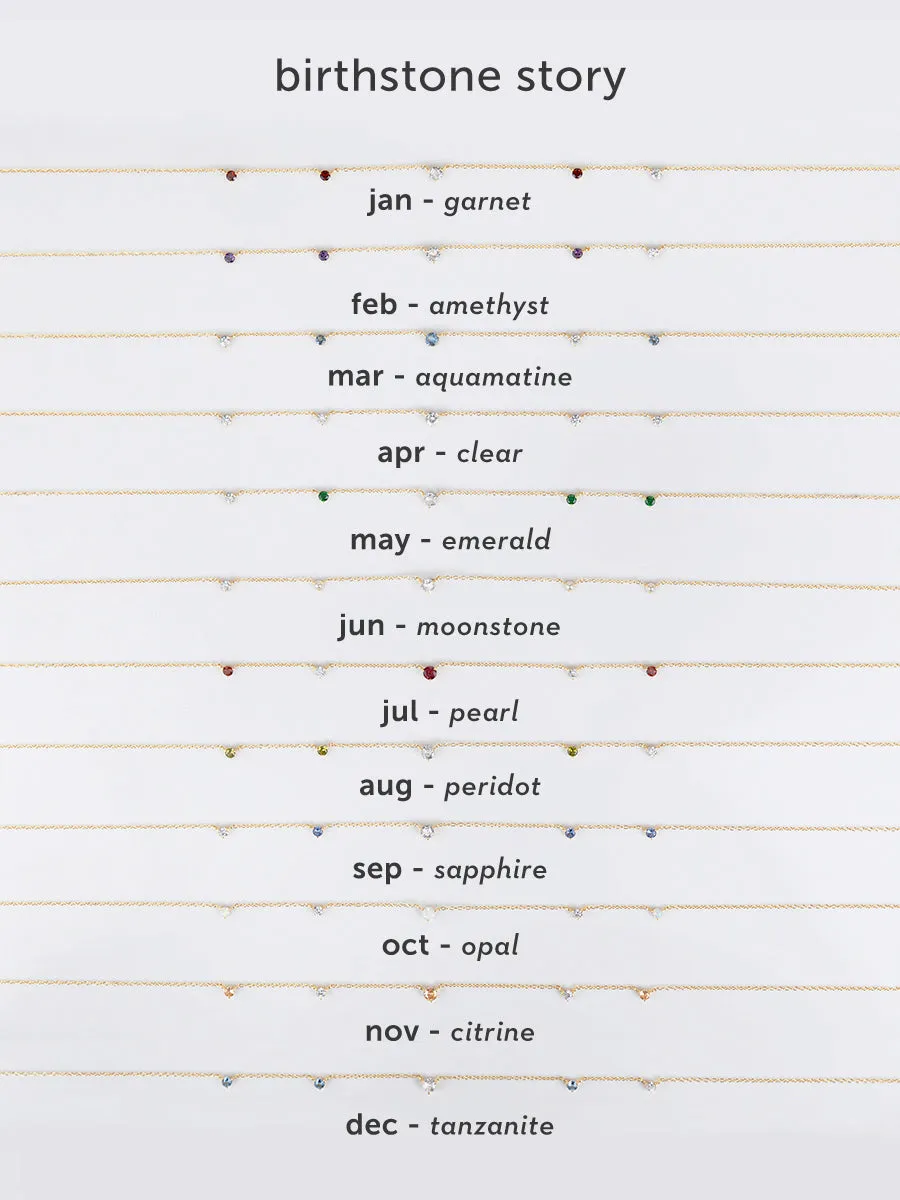 birthstone story
jan - garnet
feb - amethyst
mar - aquamatine
apr - clear
may - emerald
jun - moonstone
jul - pearl
aug - peridot
sep - sapphire
oct - opal
nov - citrine
dec - tanzanite